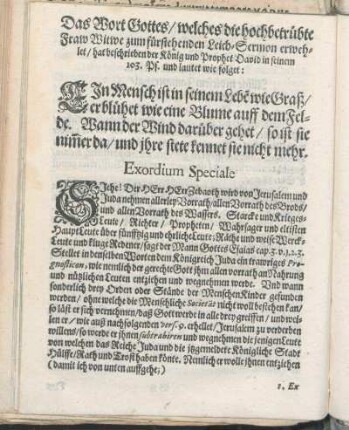 Das Wort Gottes / welches die hochbetrübte
Fraw Witwe zum fürstehenden Leich-Sermon erweh-
let / hat beschrieben der König und Prophet David in seinem
103. Ps. und lautet wie folget:
EIn Mensch ist in seinem Lebē wie Graß /
er blühet wie eine Blume auff dem Fel-
de. Wann der Wind darüber gehet / so ist sie
nim̄er da / und jhre stete kennet sie nicht mehr.
Exordium Speciale
SIehe! Der HErr HErr Zebaoth wird von Jerusalem und
Juda nehmen allerley Vorrath / allen Vorrath des Brods /
und allen Vorrath des Wassers. Starcke und Krieges-
Leute / Richter / Propheten / Wahrsager und eltisten
HauptLeute über funffzig und ehrliche Leute; Räthe und weise Werck-
Leute und kluge Redener / sagt der Mann Gottes Esaias cap. 3. v. 1. 2. 3.
Stellet in denselben Worten dem Königreich Juda ein trawriges Pro-
gnosticon, wie nemlich der gerechte Gott jhm allen vorrath an Nahrung
und nützlichen Leuten entziehen und wegnehmen werde. Und wann
sonderlich drey Orden oder Stände der MenschenKinder gefunden
werden / ohne welche die Menschliche Societät nicht woll bestehen kan /
so läst er sich vernehmen / daß Gott werde in alle drey greiffen / und weiln
er / wie auß nachfolgenden vers. 9. erhellet / Jerusalem zu verderben
willens / so werde er jhnen subtrahiren und wegnehmen die jenigen Leute
von welchen das Reiche Juda und die jtzgemeldete Königliche Stadt
Hülffe / Rath und Trost haben könte. Nemlich er wolle jhnen entziehen
(damit ich von unten auffgehe;)
1. Ex